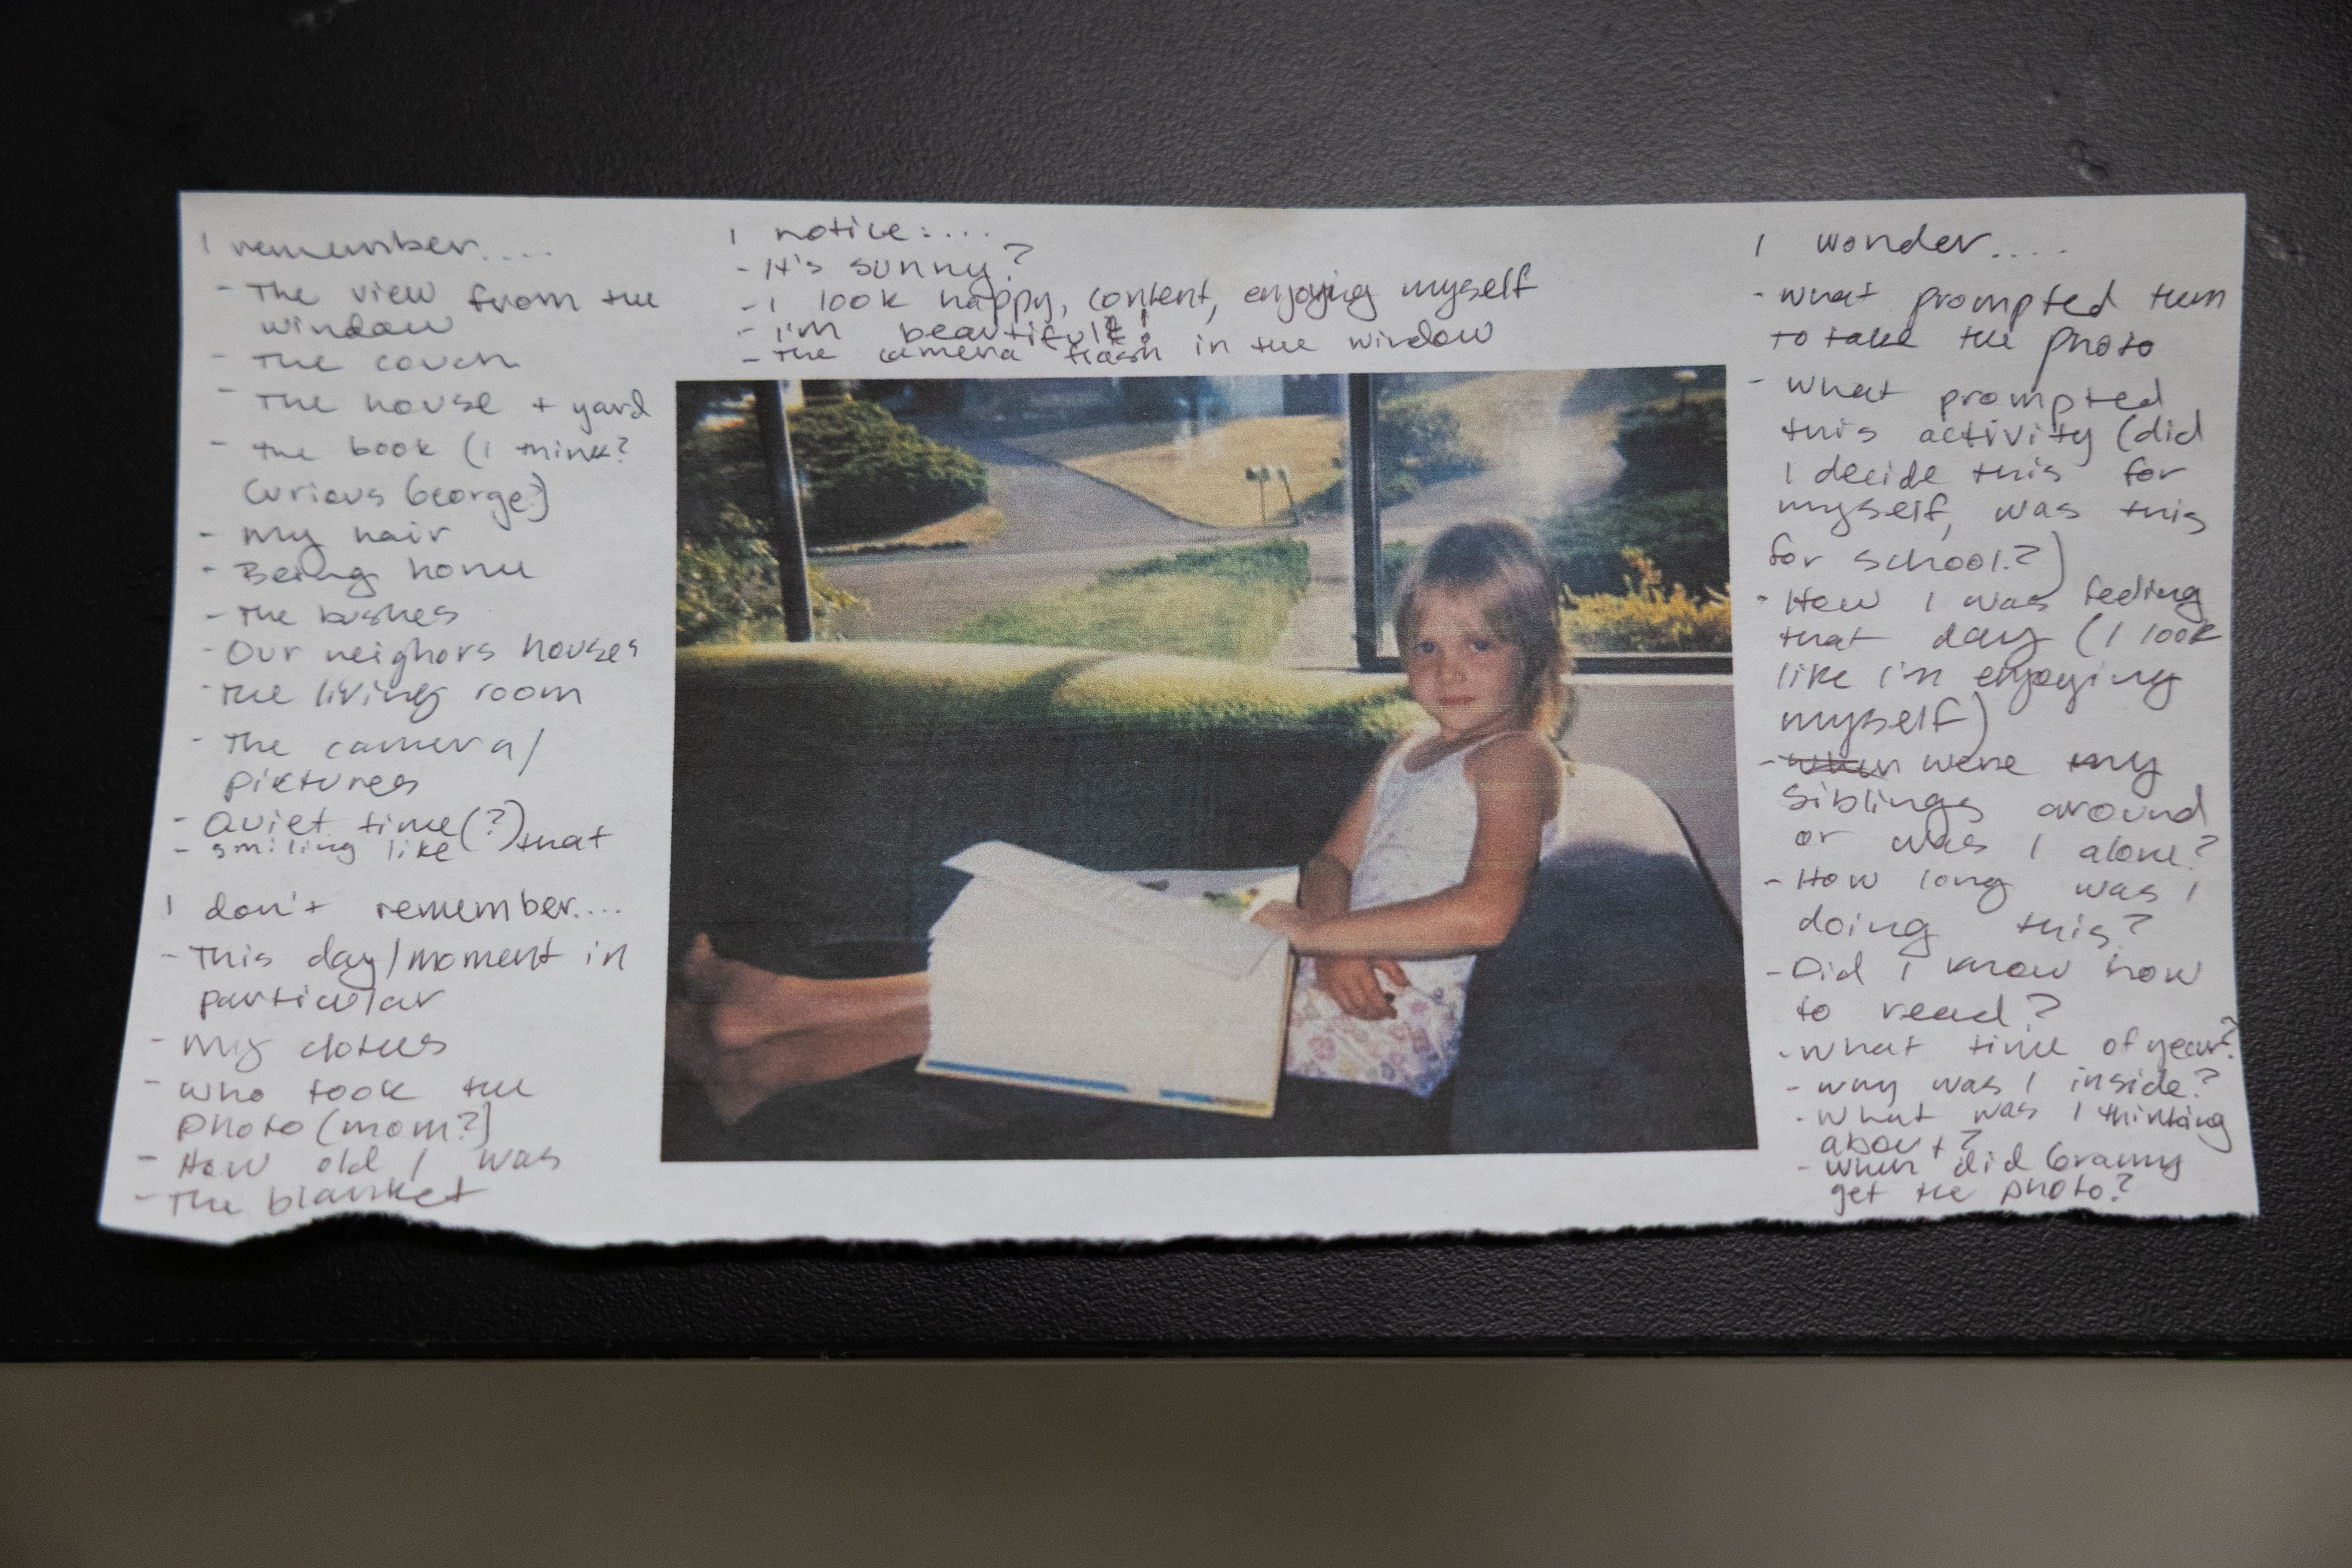 I remember....
- The view from the
window
- The couch
- The house + yard
- the book (I think?
Curious George?)
- My hair
- Being home
- The bushes
- Our neighors houses
- The living room
- The camera/
pictures
- Quiet time (?)
- smiling like that
I don't remember....
- This day/moment in
particular
- My clothes
- who took the
photo (mom?)
- How old I was
- The blanket
I notice:....
- It's sunny?
- I look happy, content, enjoying myself
- I'm beautiful!
- The camera flash in the window
I wonder....
- what prompted them
to take the photo
- what prompted
this activity (did
I decide this for
myself, was this
for school?)
- How I was feeling
that day (I look
like I'm enjoying
myself)
- were my
siblings around
or was I alone?
- How long was I
doing this?
- Did I know how
to read?
- What time of year?
- why was I inside?
- What was I thinking
about?
- when did Granny
get the photo?